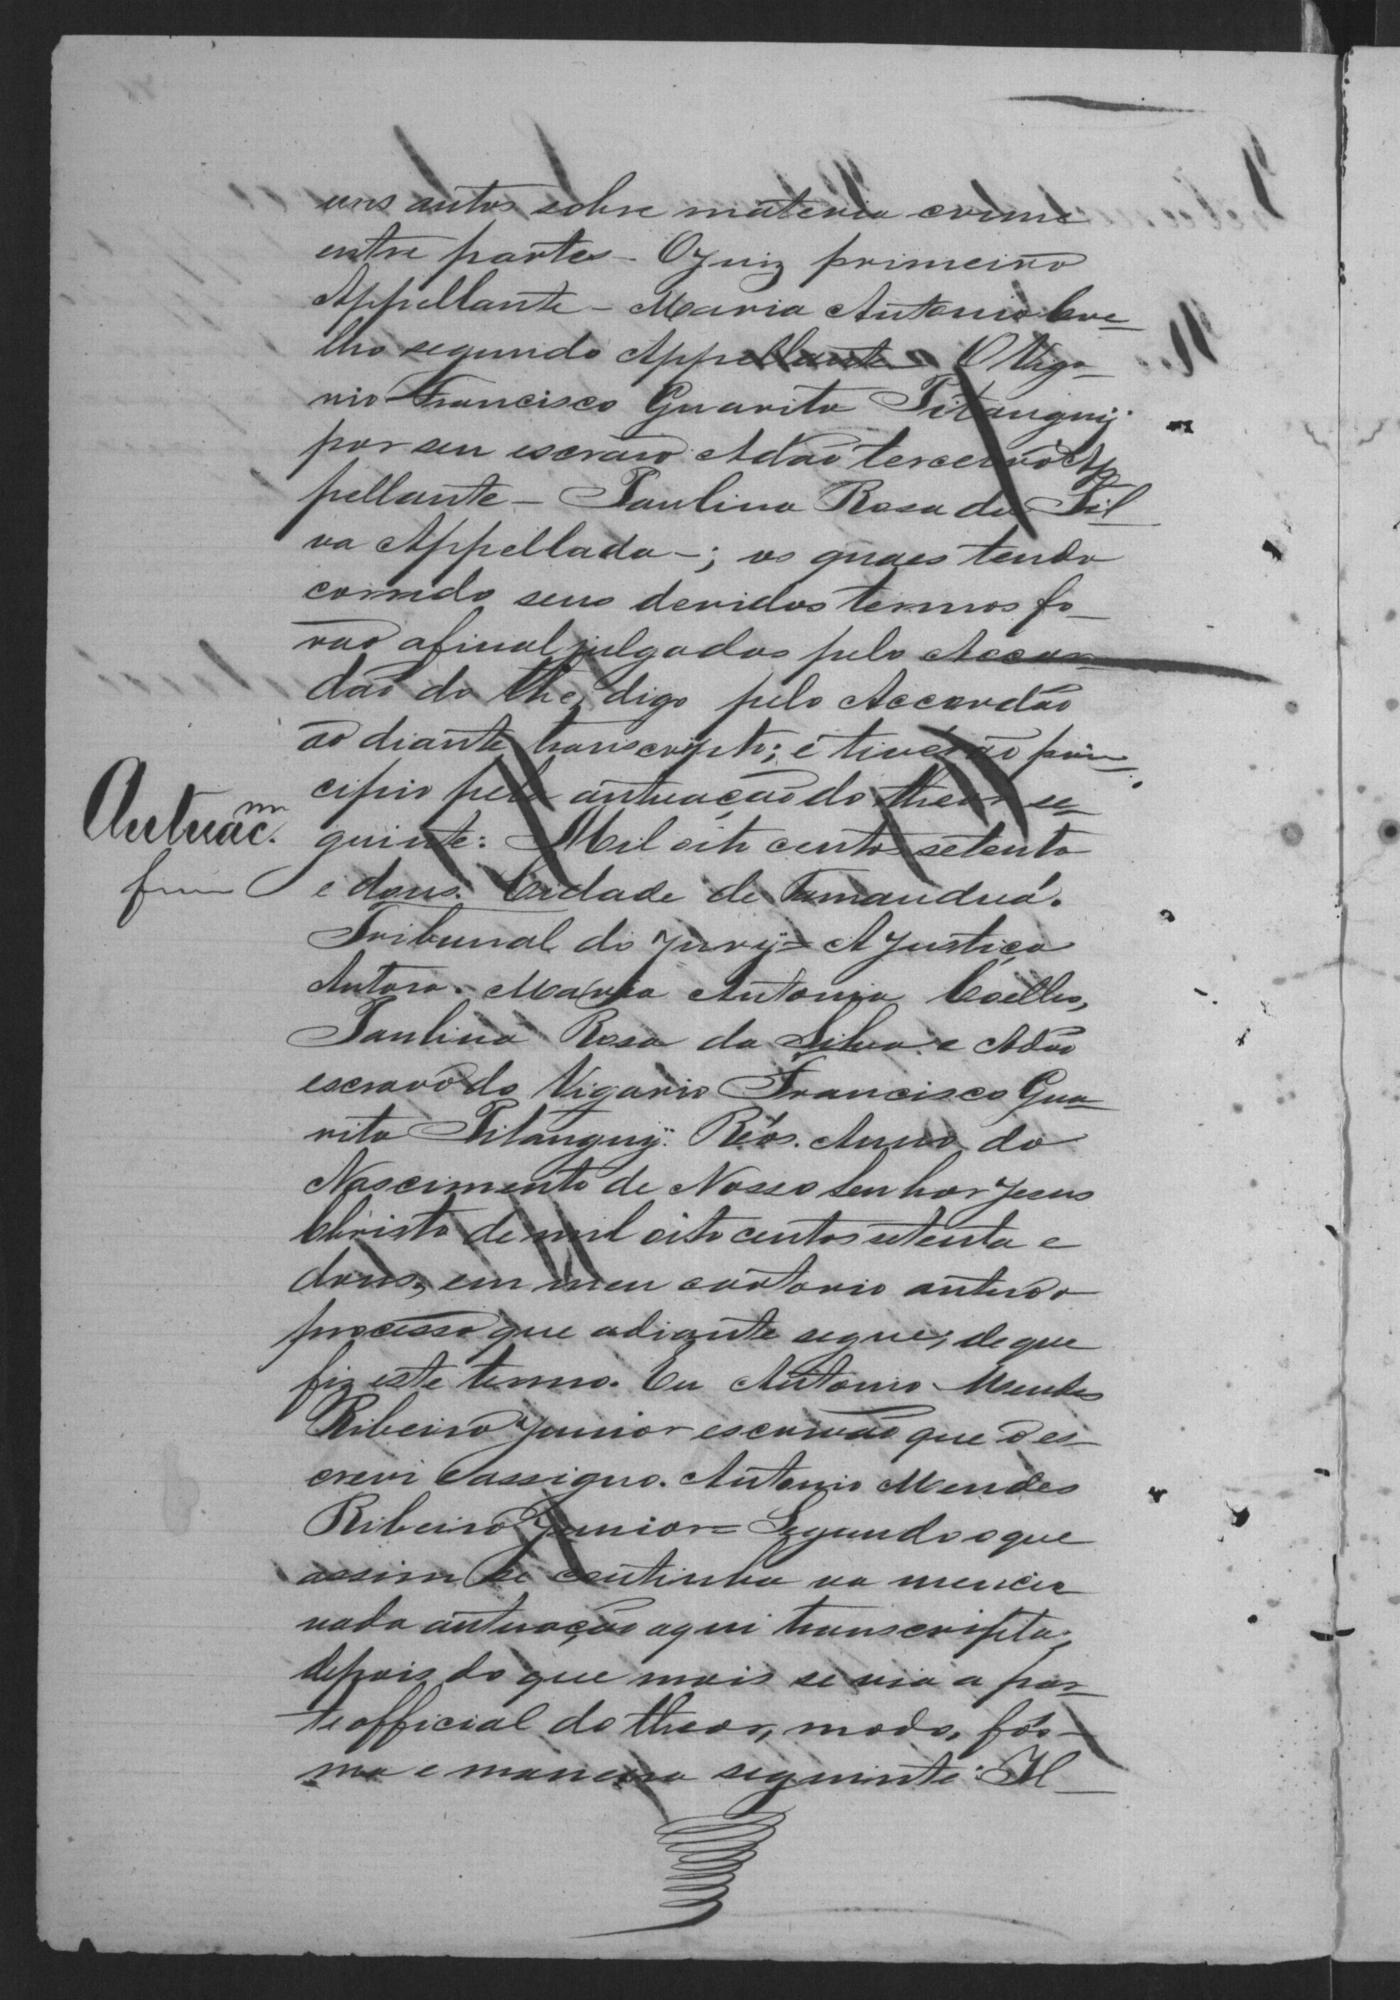 uns autos sobre materia crime
entre partes – O Juiz primeiro
Appellante – Maria Antonia Coe-
lho segundo Appellante – O Viga-
rio Francisco Guarita Pitanguÿ
por seu escravo Adão terceiro Ap
pellante – Paulina Rosa da Sil-
va Appellada –; os quaes tendo
corrido seus devidos termos fo-
rão afinal julgados pelo Accor-
dão do the, digo pelo Accordão
ao diante transcripto; e tiverão prin-
cipio pela autuação do theor se-
Autuaç.m
guinte: Mil oito centos setenta
e dous. Cidade de Tamanduá.
Tribunal do Jurÿ = A Justiça
Autora. Maria Antonia Coelho,
Paulina Rosa da Silva e Adão
escravo do Vigario Francisco Gua-
rita Pitanguÿ. Réos. Anno do
Nascimento de Nosso Senhor Jesus
Christo de mil oito centos setenta e
dous, em meu cartorio autuo o
processo que adiante segue; de que
fiz este termo. Eu Antonio Mendes
Ribeiro Junior escrivão que o es-
crevi e assigno. Antonio Mendes
Ribeiro Junior = Segundo o que
assim se continha na mencio
nada autuação aqui transcripta;
depois do que mais se via a par-
te official do theor, modo, fór-
ma e maneira seguinte: Il-